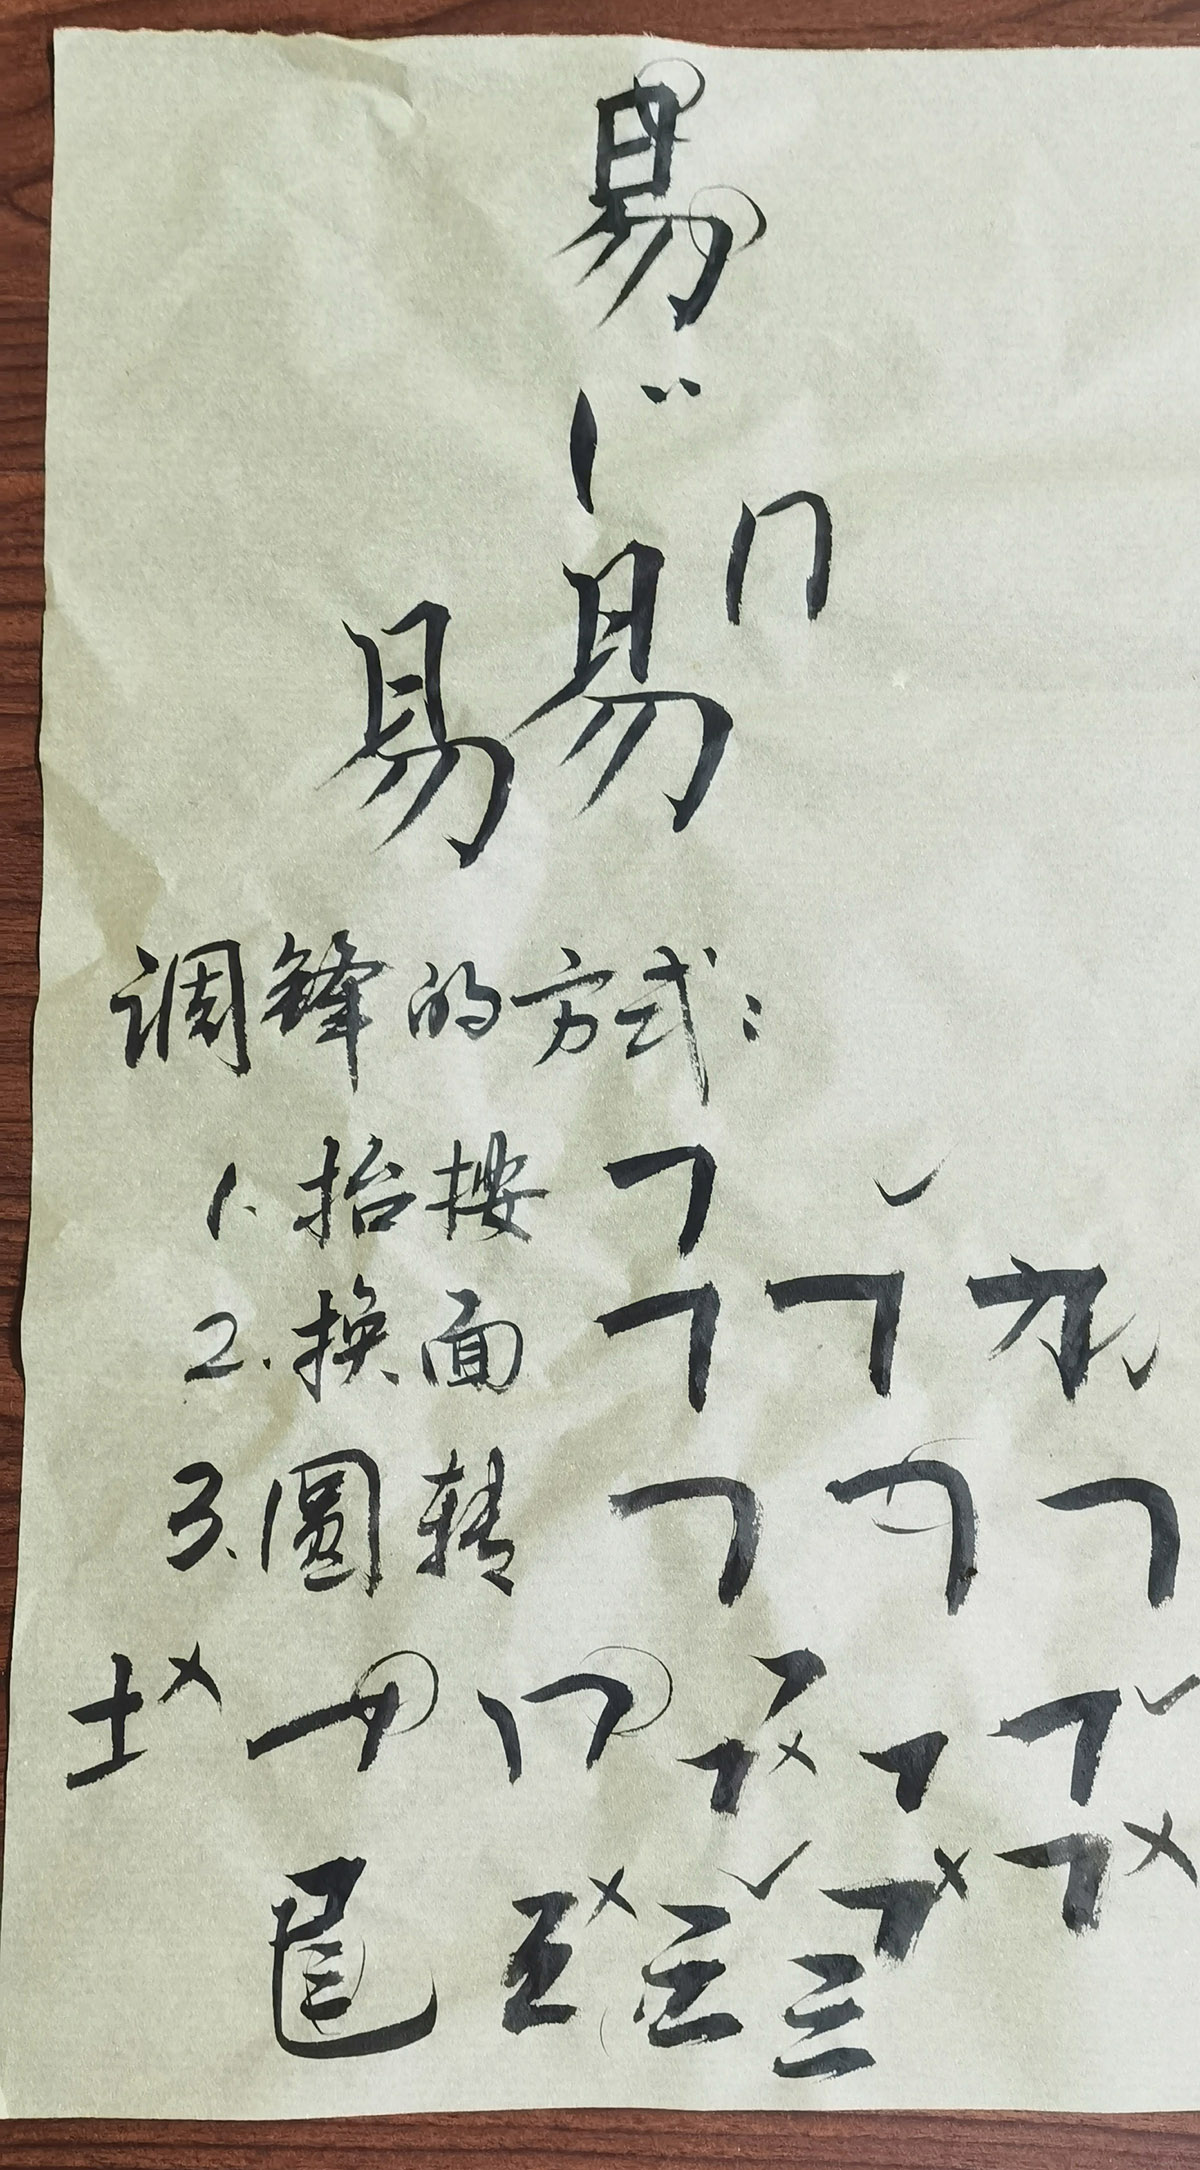 易
易
易
调锋的方式:
1.抬按
2.换面
3.圆转
土